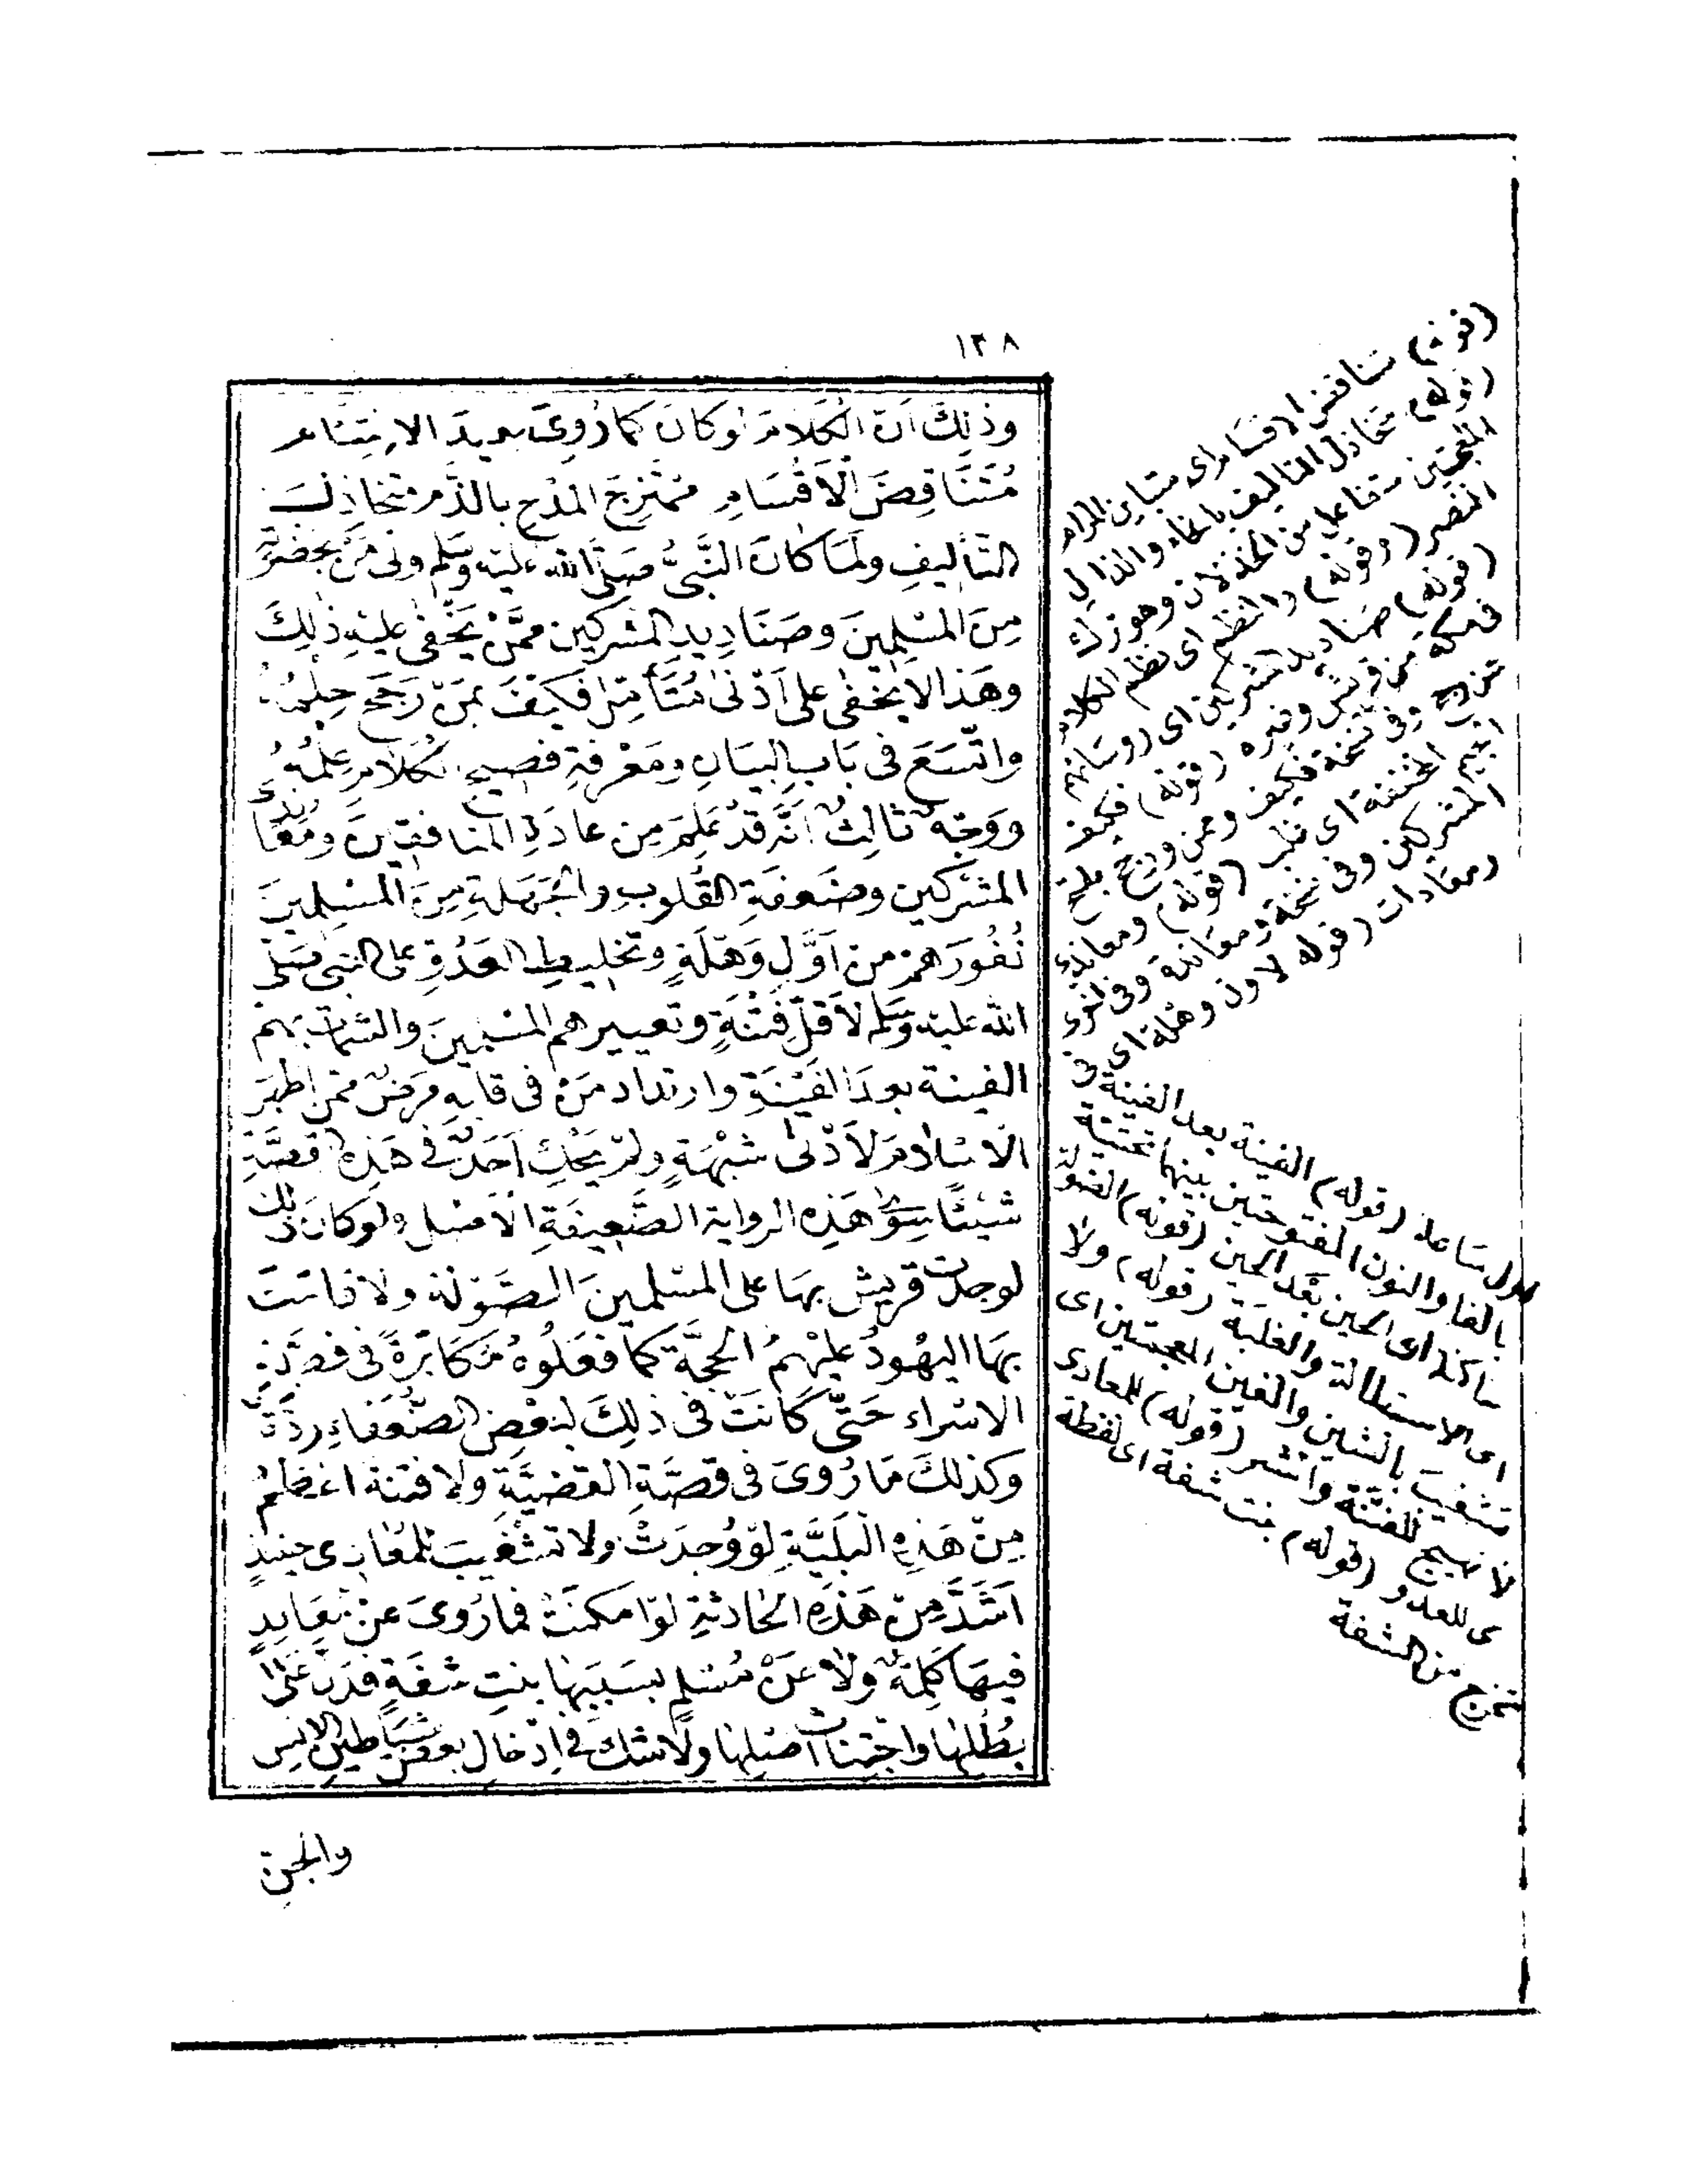 ١٣٨
وَذٰلِكَ اَنَّ الْكَلَامَ لَوْ كَانَ كَمَا رُوِىَ بَعِيدَ الاِلْتِئَامِ
مُتَنَاقِضَ الْاَقْسَامِ مُمْتَزِجَ الْمَدْحِ بِالذَّمِّ مُتَخَاذِلَ
التَّأليفِ وَلَمَا كَانَ النَّبِىُّ صَلَّى اللّٰهُ عَلَيْهِ وَسَلَّمَ وَلَا مَنْ بِحَضْرَتِهِ
مِنَ الْمُسْلِمِينَ وَصَنَادِيدِ الْمُشْرِكِينَ مِمَّنْ يَخْفٰى عَلَيْهِ ذٰلِكَ
وَهٰذَا لَا يَخْفٰى عَلٰى اَدْنٰى مُتَأَمِّلٍ فَكَيْفَ بِمَنْ رَجَحَ حِلْمُهُ
وَاتَّسَعَ فِى بَابِ الْبَيَانِ وَمَعْرِفَةِ فَصِيحِ الْكَلَامِ عِلْمُهُ
وَوَجْهٌ ثَالِثٌ اَنَّهُ قَدْ عُلِمَ مِنْ عَادَةِ الْمُنَافِقِينَ وَمُعَانِدِى
الْمُشْرِكِينَ وَضَعَفَةِ الْقُلُوبِ وَالْجَهَلَةِ مِنَ الْمُسْلِمِينَ
نُفُورُهُمْ مِنْ اَوَّلِ وَهْلَةٍ وَتَخْلِيطِ الْعَدُوِّ عَلَى النَّبِىِّ صَلَّى
اللّٰهُ عَلَيْهِ وَسَلَّمَ لِاَقَلِّ فِتْنَةٍ وَتَعْيِيرِهِمُ الْمُسْلِمِينَ وَالشَّمَاتَ بِهِمُ
الْفَيْنَةَ بَعْدَ الْفَيْنَةِ وَارْتِدَادِ مَنْ فِى قَلْبِهِ مَرَضٌ مِمَّنْ اَظْهَرَ
الْاِسْلَامَ لِاَدْنٰى شُبْهَةٍ وَلَمْ يَحْكِ اَحَدٌ فِى هٰذِهِ الْقِصَّةِ
شَيْئًا سِوٰى هٰذِهِ الرِّوَايَةِ الضَّعِيفَةِ الْاَصْلِ وَلَوْ كَانَ ذٰلِكَ
لَوَجَدَتْ قُرَيْشٌ بِهَا عَلَى الْمُسْلِمِينَ الصَّوْلَةَ وَلَاَقَامَتْ
بِهَا الْيَهُودُ عَلَيْهِمُ الْحُجَّةَ كَمَا فَعَلُوهُ مُكَابَرَةً فِى قِصَّةِ
الْاِسْرَاءِ حَتَّى كَانَتْ فِى ذٰلِكَ لِبَعْضِ الضُّعَفَاءِ رِدَّةٌ
وَكَذٰلِكَ مَا رُوِىَ فِى قِصَّةِ الْقَضِيَّةِ وَلَا فِتْنَةَ اَعْظَمُ
مِنْ هٰذِهِ الْبَلِيَّةِ لَوْ وُجِدَتْ وَلَا تَشْغِيبَ لِلْمُعَادِى حِينَئِذٍ
اَشَدُّ مِنْ هٰذِهِ الْحَادِثَةِ لَوْ اَمْكَنَتْ فَمَا رُوِىَ عَنْ مُعَانِدٍ
فِيهَا كَلِمَةٌ وَلَا عَنْ مُسْلِمٍ بِسَبَبِهَا بِنْتُ شَفَةٍ فَدَلَّ عَلٰى
بُطْلِهَا وَاجْتِثَاثِ اَصْلِهَا وَلَا شَكَّ فِى اِدْخَالِ بَعْضِ شَيَاطِينِ الْاِنْسِ
وَالْجِنِّ
(قوله) متناقض الاقسام اى متباين المرام
(قوله) متخاذل التاليف بالخاء والذال
المعجمتين متفاعل من الخذلان وهو ترك
النصر (وقوله) والنظم اى نظم الكلام
(قوله) صناديد المشركين اى روسائهم
فى مكة من قريش وغيره (قوله) فكيف
وفى نسخة فكيف ومن ورجح
(قوله) ومعاندى
المشركين وفى نسخة ومعاندة وفى اخرى
ومعادات (قوله لاول وهلة اى فى
اول ساعة (قوله) الفينة بعد الفينة
بالفا والنون المفتوحتين بينهما تحتية
ساكنة اى الحين بعد الحين (قوله) الصولة
اى الاستطالة والغلبة (قوله) ولا
تشغيب بالشين والغين المعجمتين اى
لا تهييج للفتنة وانشر (قوله) للمعادى
اى للعدو (قوله) بنت شفة اى لفظة
تخرج من الشفة